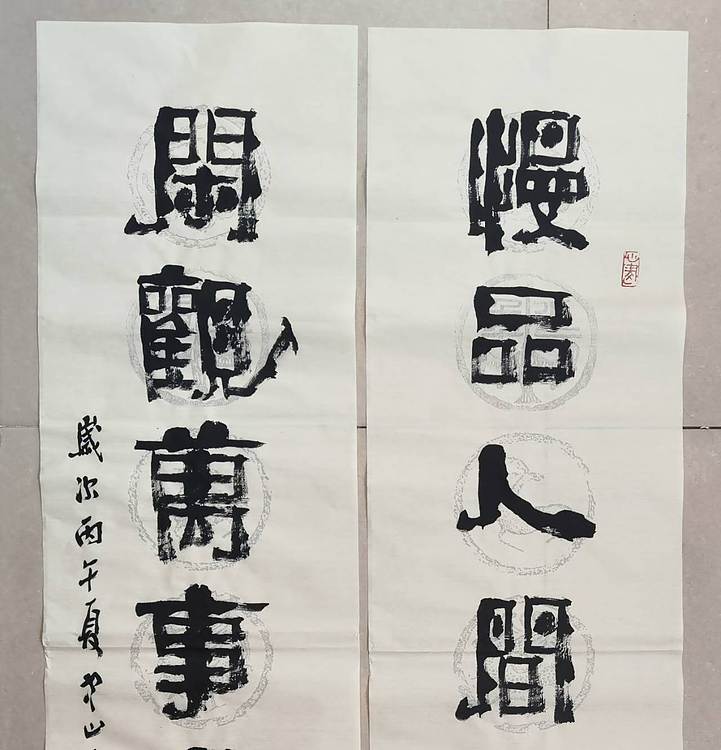 慢品人間
閑觀萬事
歲次丙午夏
山